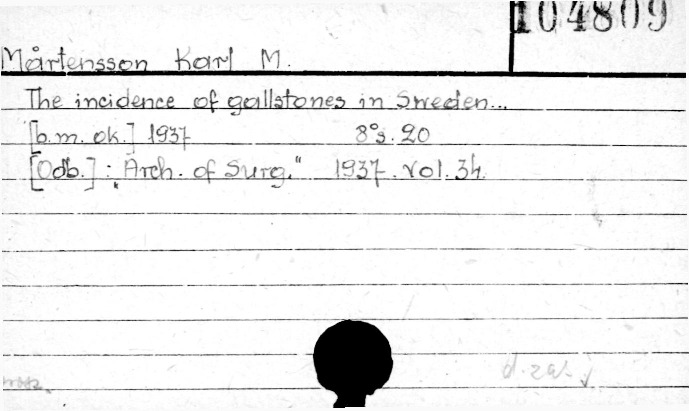 104809
Mårtensson Karl M.
The incidence of gallstones in Sweden...
[b.m. ok.] 1937 8°s. 20
[Odb.] : „Arch. of Surg." 1937. vol. 34.
d. zas.